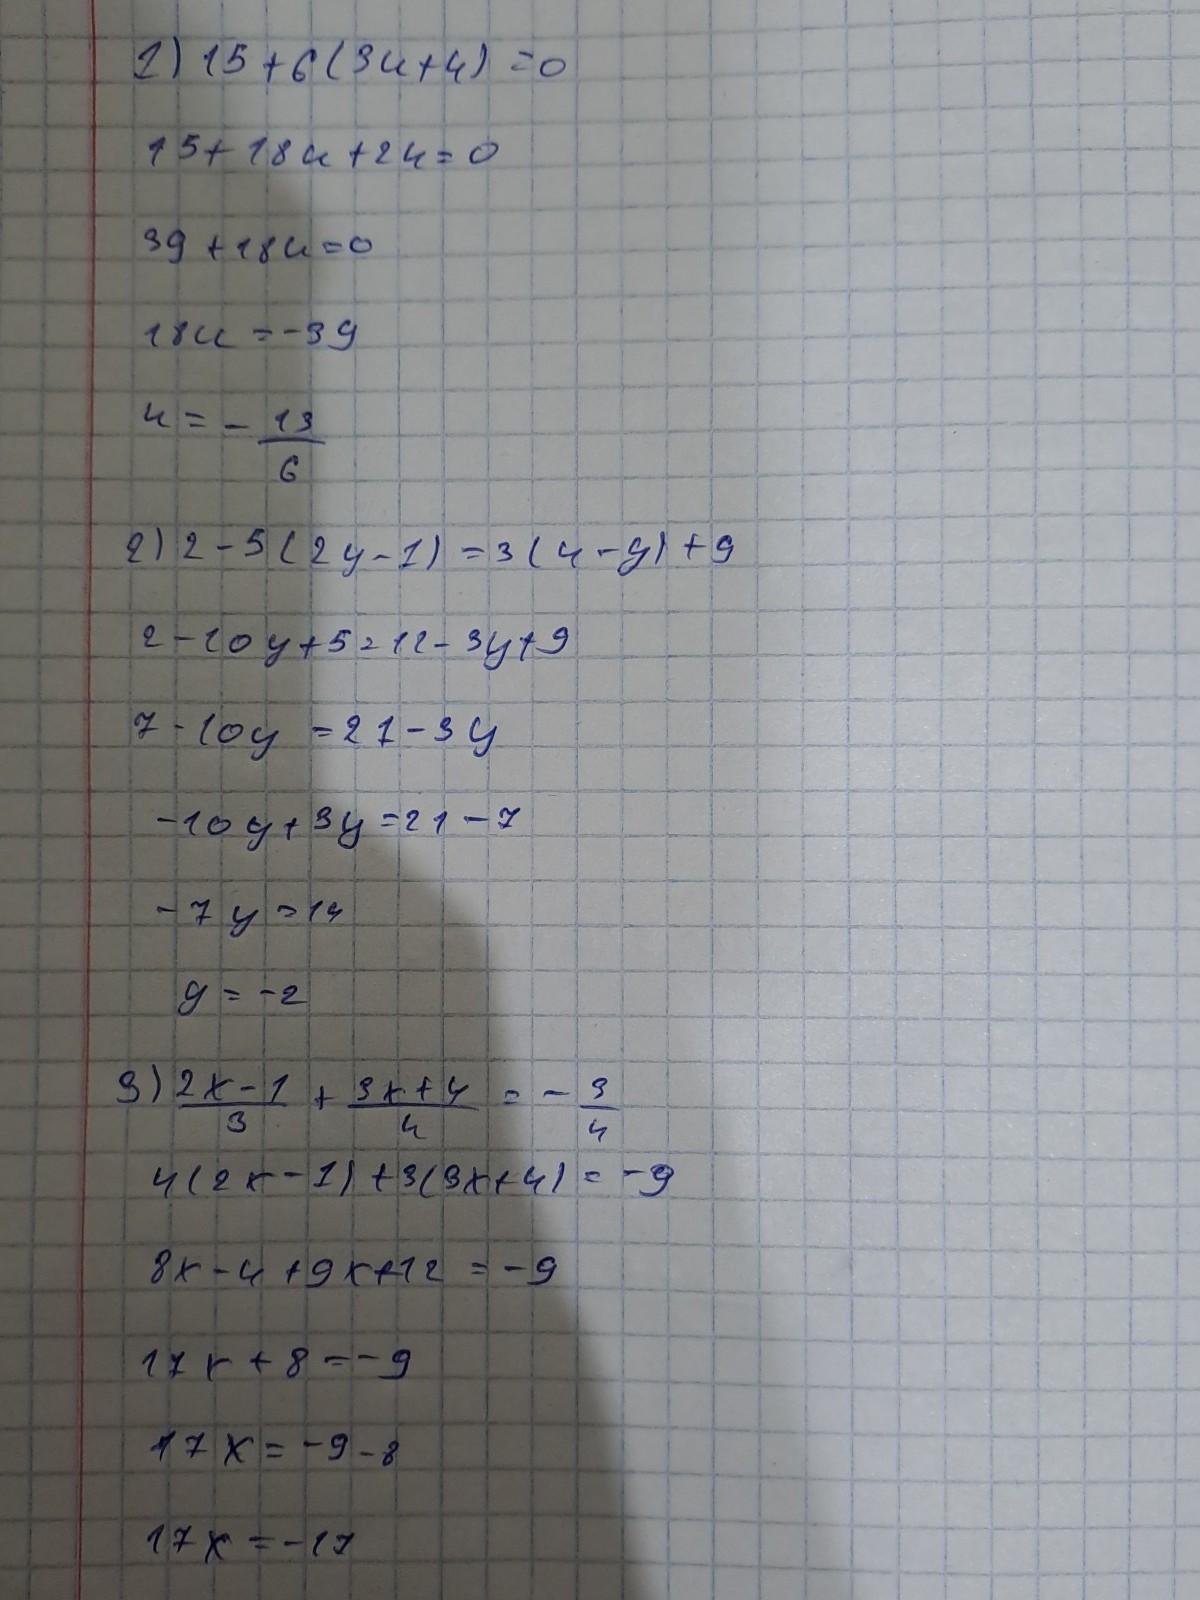 1) 15+6(3u+4)=0
15+18u+24=0
39+18u=0
18u=-39
u=-13/6
2) 2-5(2y-1)=3(4-y)+9
2-10y+5=12-3y+9
7-10y=21-3y
-10y+3y=21-7
-7y=14
y=-2
3) (2x-1)/3 + (3x+4)/4 = -3/4
4(2x-1)+3(3x+4)=-9
8x-4+9x+12=-9
17x+8=-9
17x=-9-8
17x=-17